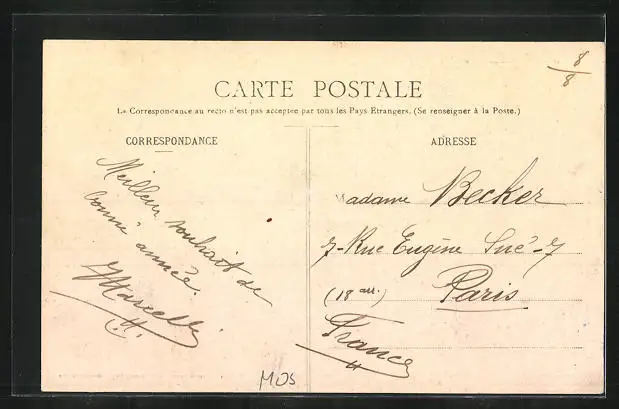 8/8
CARTE POSTALE
La Correspondance au recto n'est pas acceptée par tous les Pays Etrangers. (Se renseigner à la Poste.)
CORRESPONDANCE
Meilleur souhait de
bonne année.
Marcelle
ADRESSE
Madame Becker
7-Rue Eugène Sué-7
(18 arr.) Paris
France
MOS